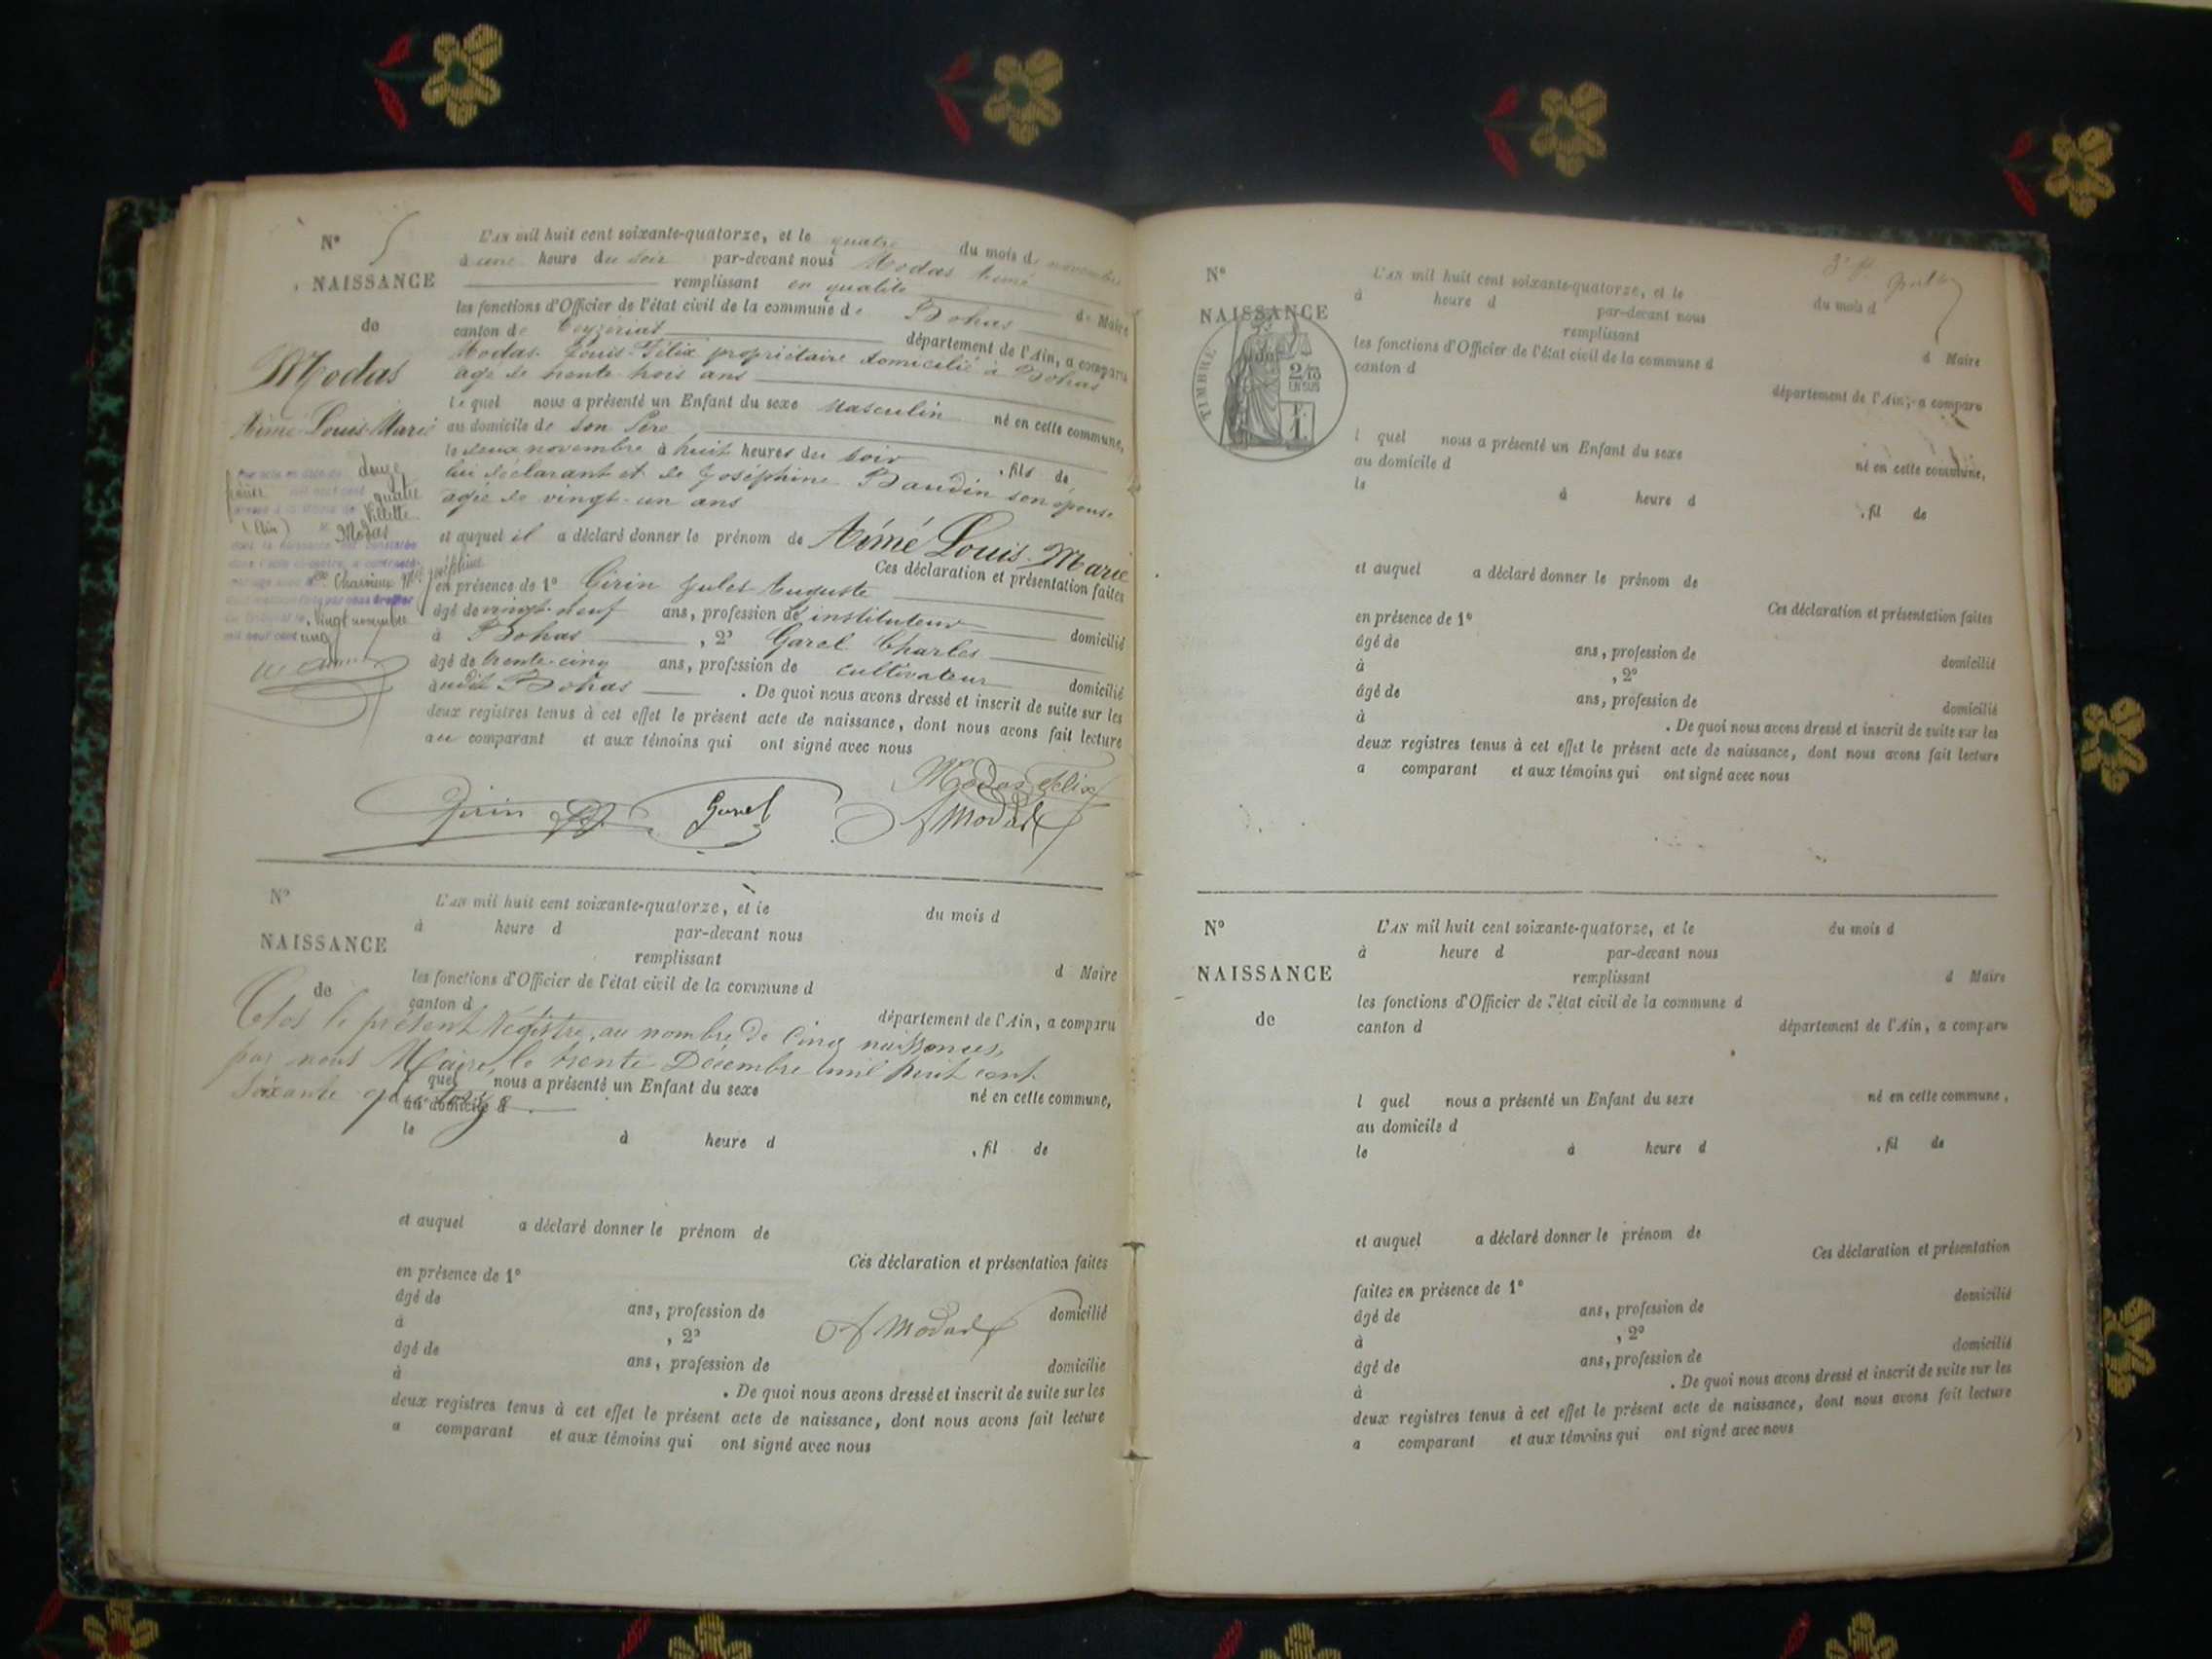 N° 5
NAISSANCE
de
Modas
Aimé Louis Marie
L'AN mil huit cent soixante-quatorze, et le quatre du mois de novembre
à une heure du soir par-devant nous Modas Aimé
remplissant en qualité de Maire
les fonctions d'Officier de l'état civil de la commune de Bohas
canton de Ceyzériat département de l'Ain, a comparu
Modas Louis Félix propriétaire domicilié à Bohas
âgé de trente trois ans
lequel nous a présenté un Enfant du sexe Masculin né en cette commune,
au domicile de son Père
le deux novembre à huit heures du soir, fils de
lui déclarant et de Joséphine Baudin son épouse
agée de vingt-un ans
et auquel il a déclaré donner le prénom de Aimé Louis Marie
Ces déclaration et présentation faites
en présence de 1° Girin Jules Auguste
âgé de vingt-neuf ans, profession de instituteur domicilié
à Bohas, 2° Garel Charles
âgé de trente-cinq ans, profession de cultivateur domicilié
audit Bohas. De quoi nous avons dressé et inscrit de suite sur les
deux registres tenus à cet effet le présent acte de naissance, dont nous avons fait lecture
au comparant et aux témoins qui ont signé avec nous
douze
quatre
Villette
(Ain) Modas
Joséphine
vingt novembre
mil neuf cent cinq
Modas Félix
Girin Garel A Modas
N°
NAISSANCE
de
L'AN mil huit cent soixante-quatorze, et le du mois d
à heure d par-devant nous
remplissant d Maire
les fonctions d'Officier de l'état civil de la commune d
canton d département de l'Ain, a comparu
Clos le présent Registre, au nombre de Cinq naissances,
par nous Maire, le trente Décembre mil huit cent
soixante quatorze
l quel nous a présenté un Enfant du sexe né en cette commune,
au domicile d
le à heure d , fil de
et auquel a déclaré donner le prénom de
Ces déclaration et présentation faites
en présence de 1°
âgé de ans, profession de domicilié
à , 2°
A Modas
âgé de ans, profession de domicilié
à . De quoi nous avons dressé et inscrit de suite sur les
deux registres tenus à cet effet le présent acte de naissance, dont nous avons fait lecture
a comparant et aux témoins qui ont signé avec nous
N°
NAISSANCE
de
TIMBRE
2/10
EN SUS
F.
1.
L'AN mil huit cent soixante-quatorze, et le du mois d
à heure d par-devant nous
remplissant d Maire
les fonctions d'Officier de l'état civil de la commune d
canton d département de l'Ain, a comparu
l quel nous a présenté un Enfant du sexe né en cette commune,
au domicile d
le à heure d , fil de
et auquel a déclaré donner le prénom de
Ces déclaration et présentation faites
en présence de 1°
âgé de ans, profession de domicilié
à , 2°
âgé de ans, profession de domicilié
à . De quoi nous avons dressé et inscrit de suite sur les
deux registres tenus à cet effet le présent acte de naissance, dont nous avons fait lecture
a comparant et aux témoins qui ont signé avec nous
N°
NAISSANCE
de
L'AN mil huit cent soixante-quatorze, et le du mois d
à heure d par-devant nous
remplissant d Maire
les fonctions d'Officier de l'état civil de la commune d
canton d département de l'Ain, a comparu
l quel nous a présenté un Enfant du sexe né en cette commune,
au domicile d
le à heure d , fil de
et auquel a déclaré donner le prénom de
Ces déclaration et présentation
faites en présence de 1°
âgé de ans, profession de domicilié
à , 2°
âgé de ans, profession de domicilié
à . De quoi nous avons dressé et inscrit de suite sur les
deux registres tenus à cet effet le présent acte de naissance, dont nous avons fait lecture
a comparant et aux témoins qui ont signé avec nous